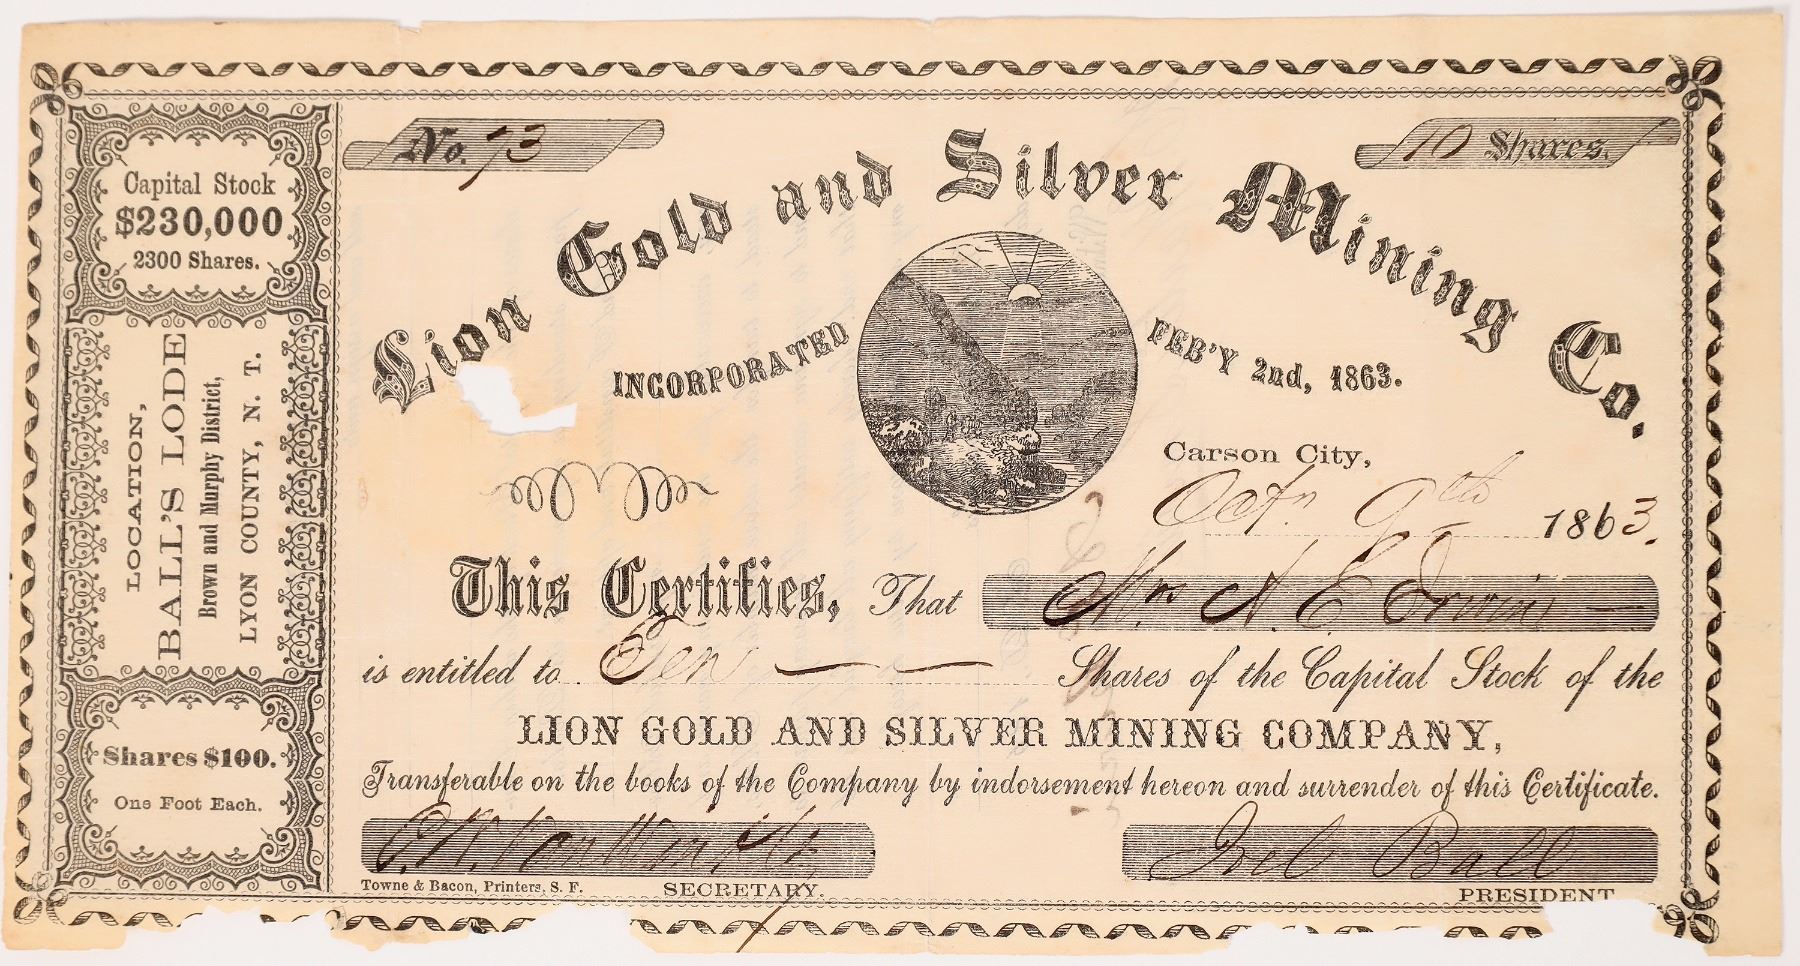 Capital Stock
$230,000
2300 Shares.
LOCATION,
BALL'S LODE
Brown and Murphy District,
LYON COUNTY, N. T.
Shares $100.
One Foot Each.
No. 73
10 Shares.
Lion Gold and Silver Mining Co.
INCORPORATED FEB'Y 2nd, 1863.
Carson City,
Octr 9th 1863.
This Certifies, That Mrs A. E. Orwin
is entitled to Ten Shares of the Capital Stock of the
LION GOLD AND SILVER MINING COMPANY,
Transferable on the books of the Company by indorsement hereon and surrender of this Certificate.
Joel Ball
Towne & Bacon, Printers, S. F. SECRETARY. PRESIDENT